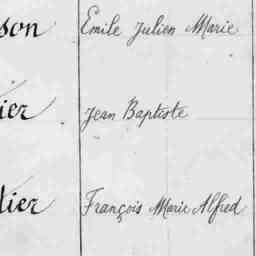 son Emile Julien Marie
ier Jean Baptiste
tier François Marie Alfred